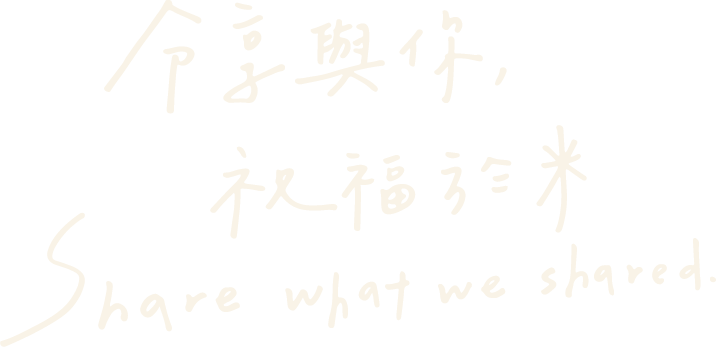 令享與你,
祝福於米
Share what we shared.